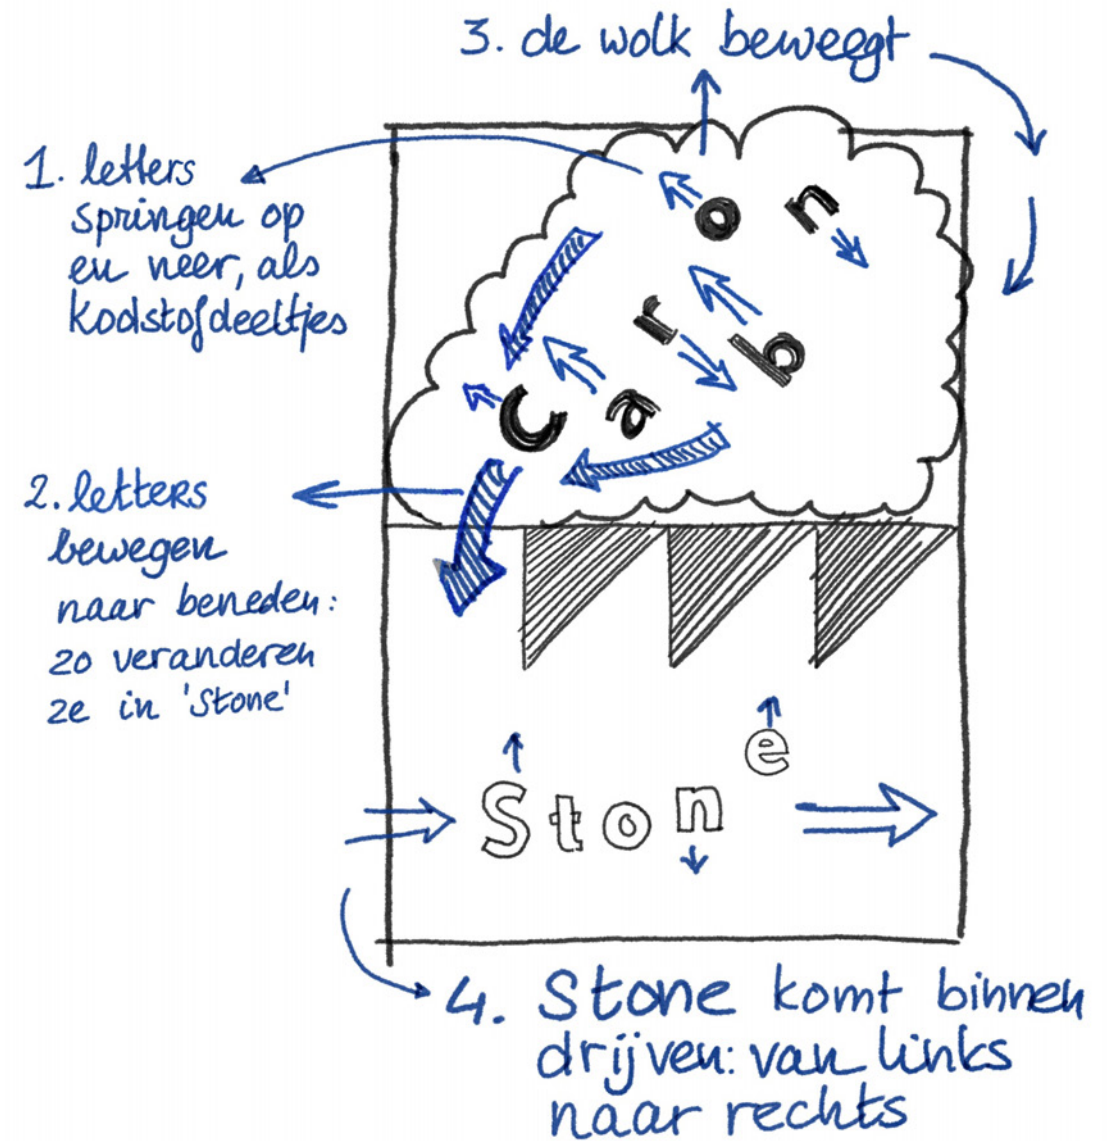 3. de wolk beweegt
1. letters
springen op
en neer, als
koolstofdeeltjes
o n
r b
C a
2. letters
bewegen
naar beneden:
zo veranderen
ze in 'Stone'
Stone
4. Stone komt binnen
drijven: van links
naar rechts